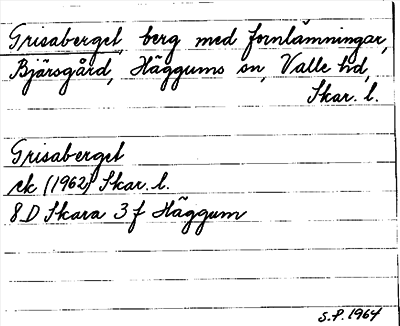 Grisaberget, berg med fornlämningar,
Bjärsgård, Häggums sn, Valle hd,
Skar. l.
Grisaberget
ek (1962) Skar. l.
8 D Skara 3 f Häggum
S.P. 1964